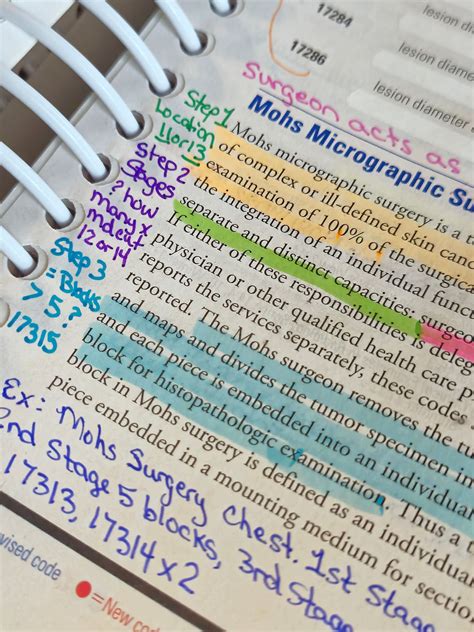 17284
lesion diam
17286
lesion diam
lesion diameter
Surgeon acts as
Mohs Micrographic Su
Step 1
Location
11 or 13
Step 2
Stages
? how
many x
md cut
12 or 14
Step 3
= Blocks
> 5 ?
17315
Mohs micrographic surgery is a t
of complex or ill-defined skin canc
examination of 100% of the surgica
the integration of an individual func
separate and distinct capacities: surgeo
If either of these responsibilities is deleg
physician or other qualified health care p
reports the services separately, these codes
reported. The Mohs surgeon removes the tu
and maps and divides the tumor specimen in
and each piece is embedded into an individual
block for histopathologic examination. Thus a
block in Mohs surgery is defined as an individua
piece embedded in a mounting medium for sectio
Ex: Mohs Surgery Chest. 1st Stag
2nd Stage 5 blocks, 3rd Stag
17313, 17314 x 2
vised code
= New cod